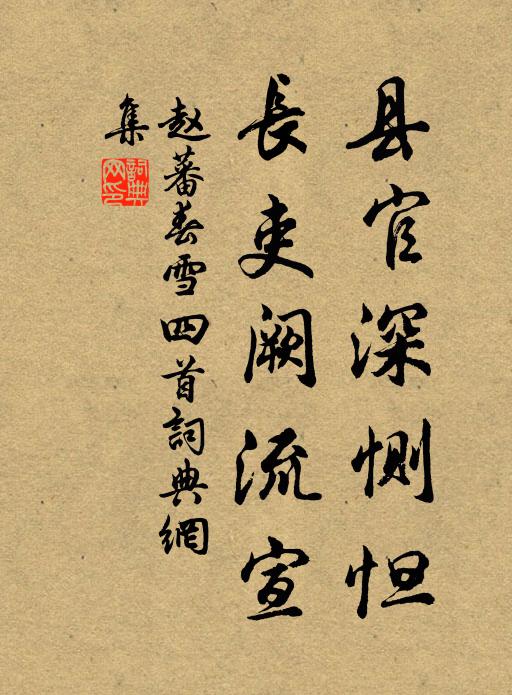 县官深恻怛
長吏阙流宣
赵蕃春雪四首詞典網
集
詞典网印